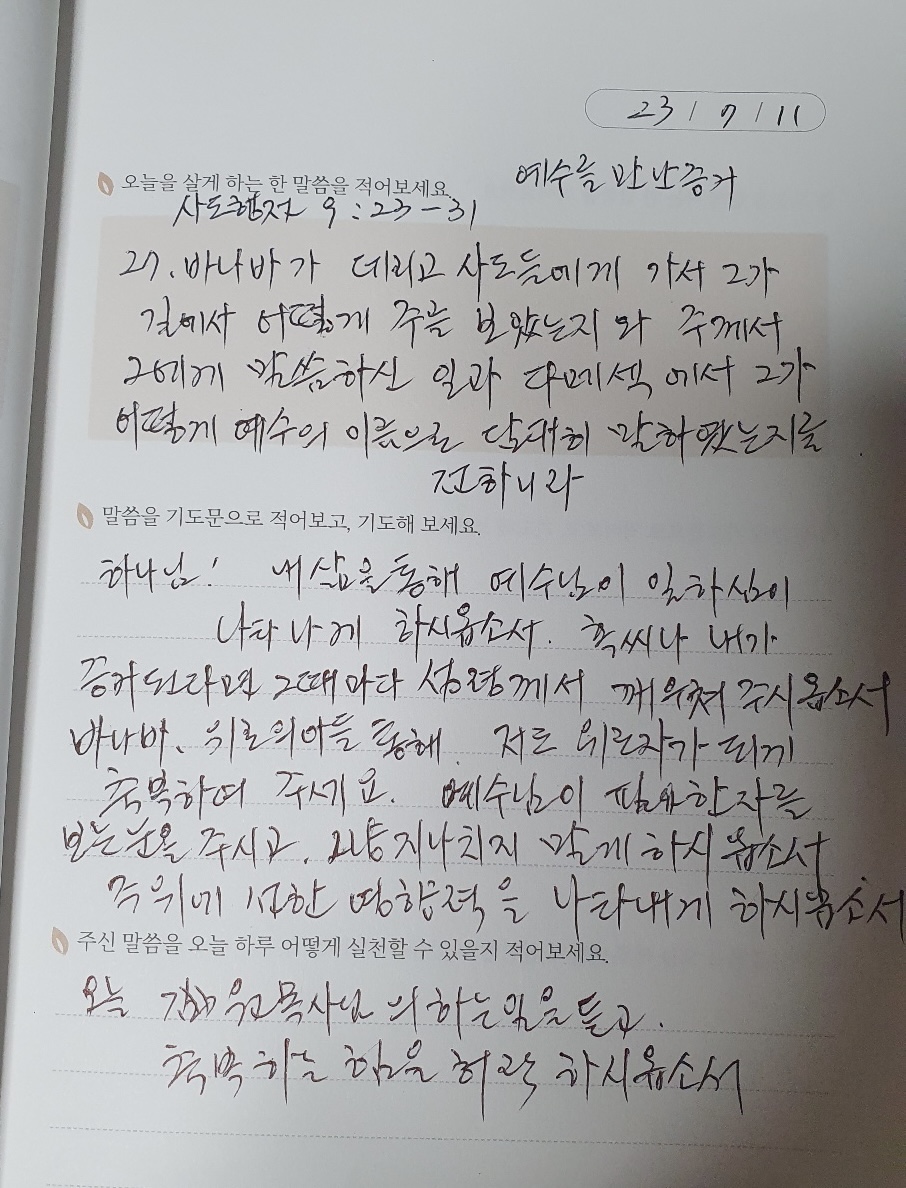 23 / 7 / 11
예수를 만난 증거
오늘을 살게 하는 한 말씀을 적어보세요.
사도행전 9 : 23 - 31
27. 바나바가 데리고 사도들에게 가서 그가
길에서 어떻게 주를 보았는지와 주께서
그에게 말씀하신 일과 다메섹에서 그가
어떻게 예수의 이름으로 담대히 말하였는지를
전하니라
말씀을 기도문으로 적어보고, 기도해 보세요.
하나님! 내 삶을 통해 예수님이 일하심이
나타나게 하시옵소서. 혹씨나 내가
증거된다면 그때마다 성령께서 깨우쳐 주시옵소서
바나바, 위로의아들 통해 저도 위로자가 되게
축복하여 주세요. 예수님이 필요한자를
보는눈을 주시고, 그냥 지나치지 말게 하시옵소서
주위에 선한 영향력을 나타내게 하시옵소서
주신 말씀을 오늘 하루 어떻게 실천할 수 있을지 적어보세요.
오늘 목사님의 하는일을 듣고,
축복하는 힘을 허락 하시옵소서